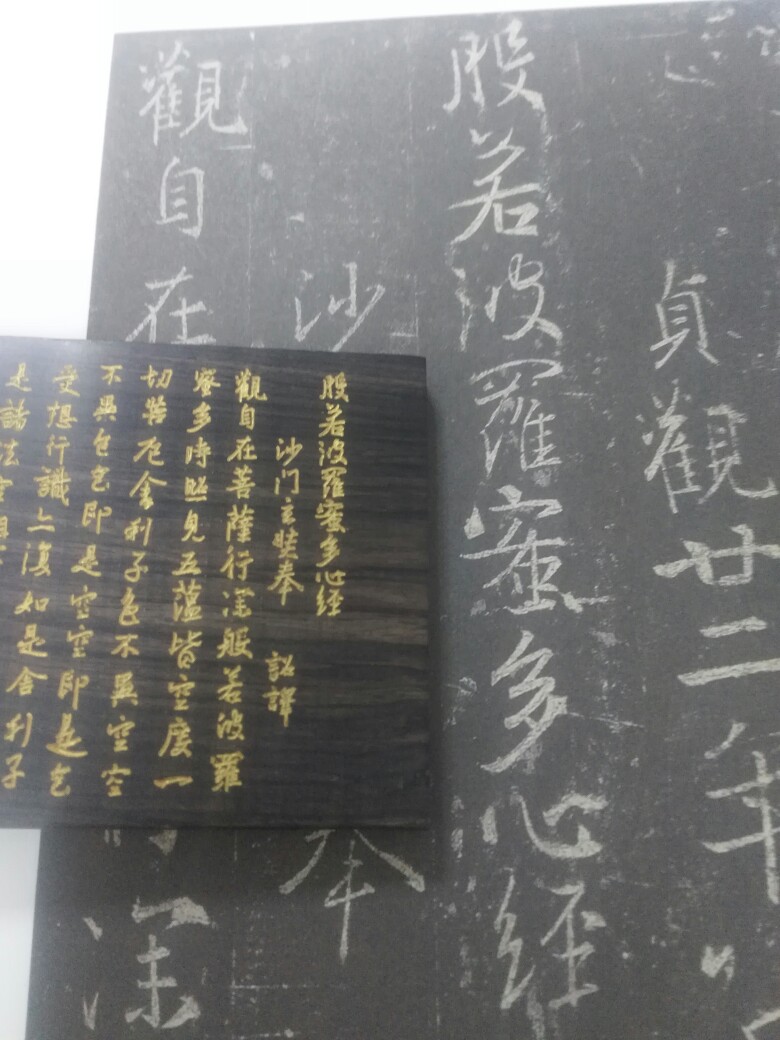 貞觀廿二年
般若波羅蜜多心經
沙
奉
觀自在
深
般若波羅蜜多心經
沙門玄奘奉 詔譯
觀自在菩薩行深般若波羅
蜜多時照見五蘊皆空度一
切苦厄舍利子色不異空空
不異色色即是空空即是色
受想行識亦復如是舍利子
是諸法空相